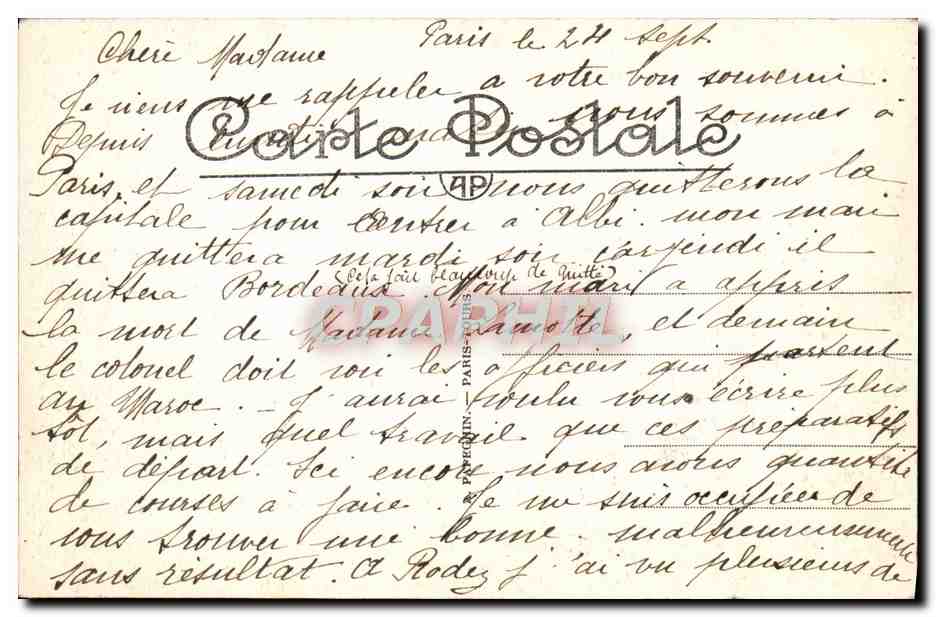 Paris le 24 Sept.
Chère Madame
Je viens me rappeler a votre bon souvenir.
Depuis nous sommes à
Carte Postale
AP
Paris, et samedi soir nous quitterons la
capitale pour rentrer à Albi. mon mari
me quittera mardi soir car jeudi il
quittera Bordeaux. Mon mari a appris
(Cela fait beaucoup de
la mort de Madame Lamotte, et demain
le colonel doit voir les officiers qui partent
au Maroc. - J'aurai voulu vous écrire plus
tôt, mais quel travail que ces préparatifs
de départ. Ici encore nous avons quantité
de courses à faire. Je me suis occupée de
vous trouver une bonne. malheureusement
sans résultat. A Rodez j'ai vu plusieurs de
A. PAPEGHIN. - PARIS-TOURS
CPAPHIL